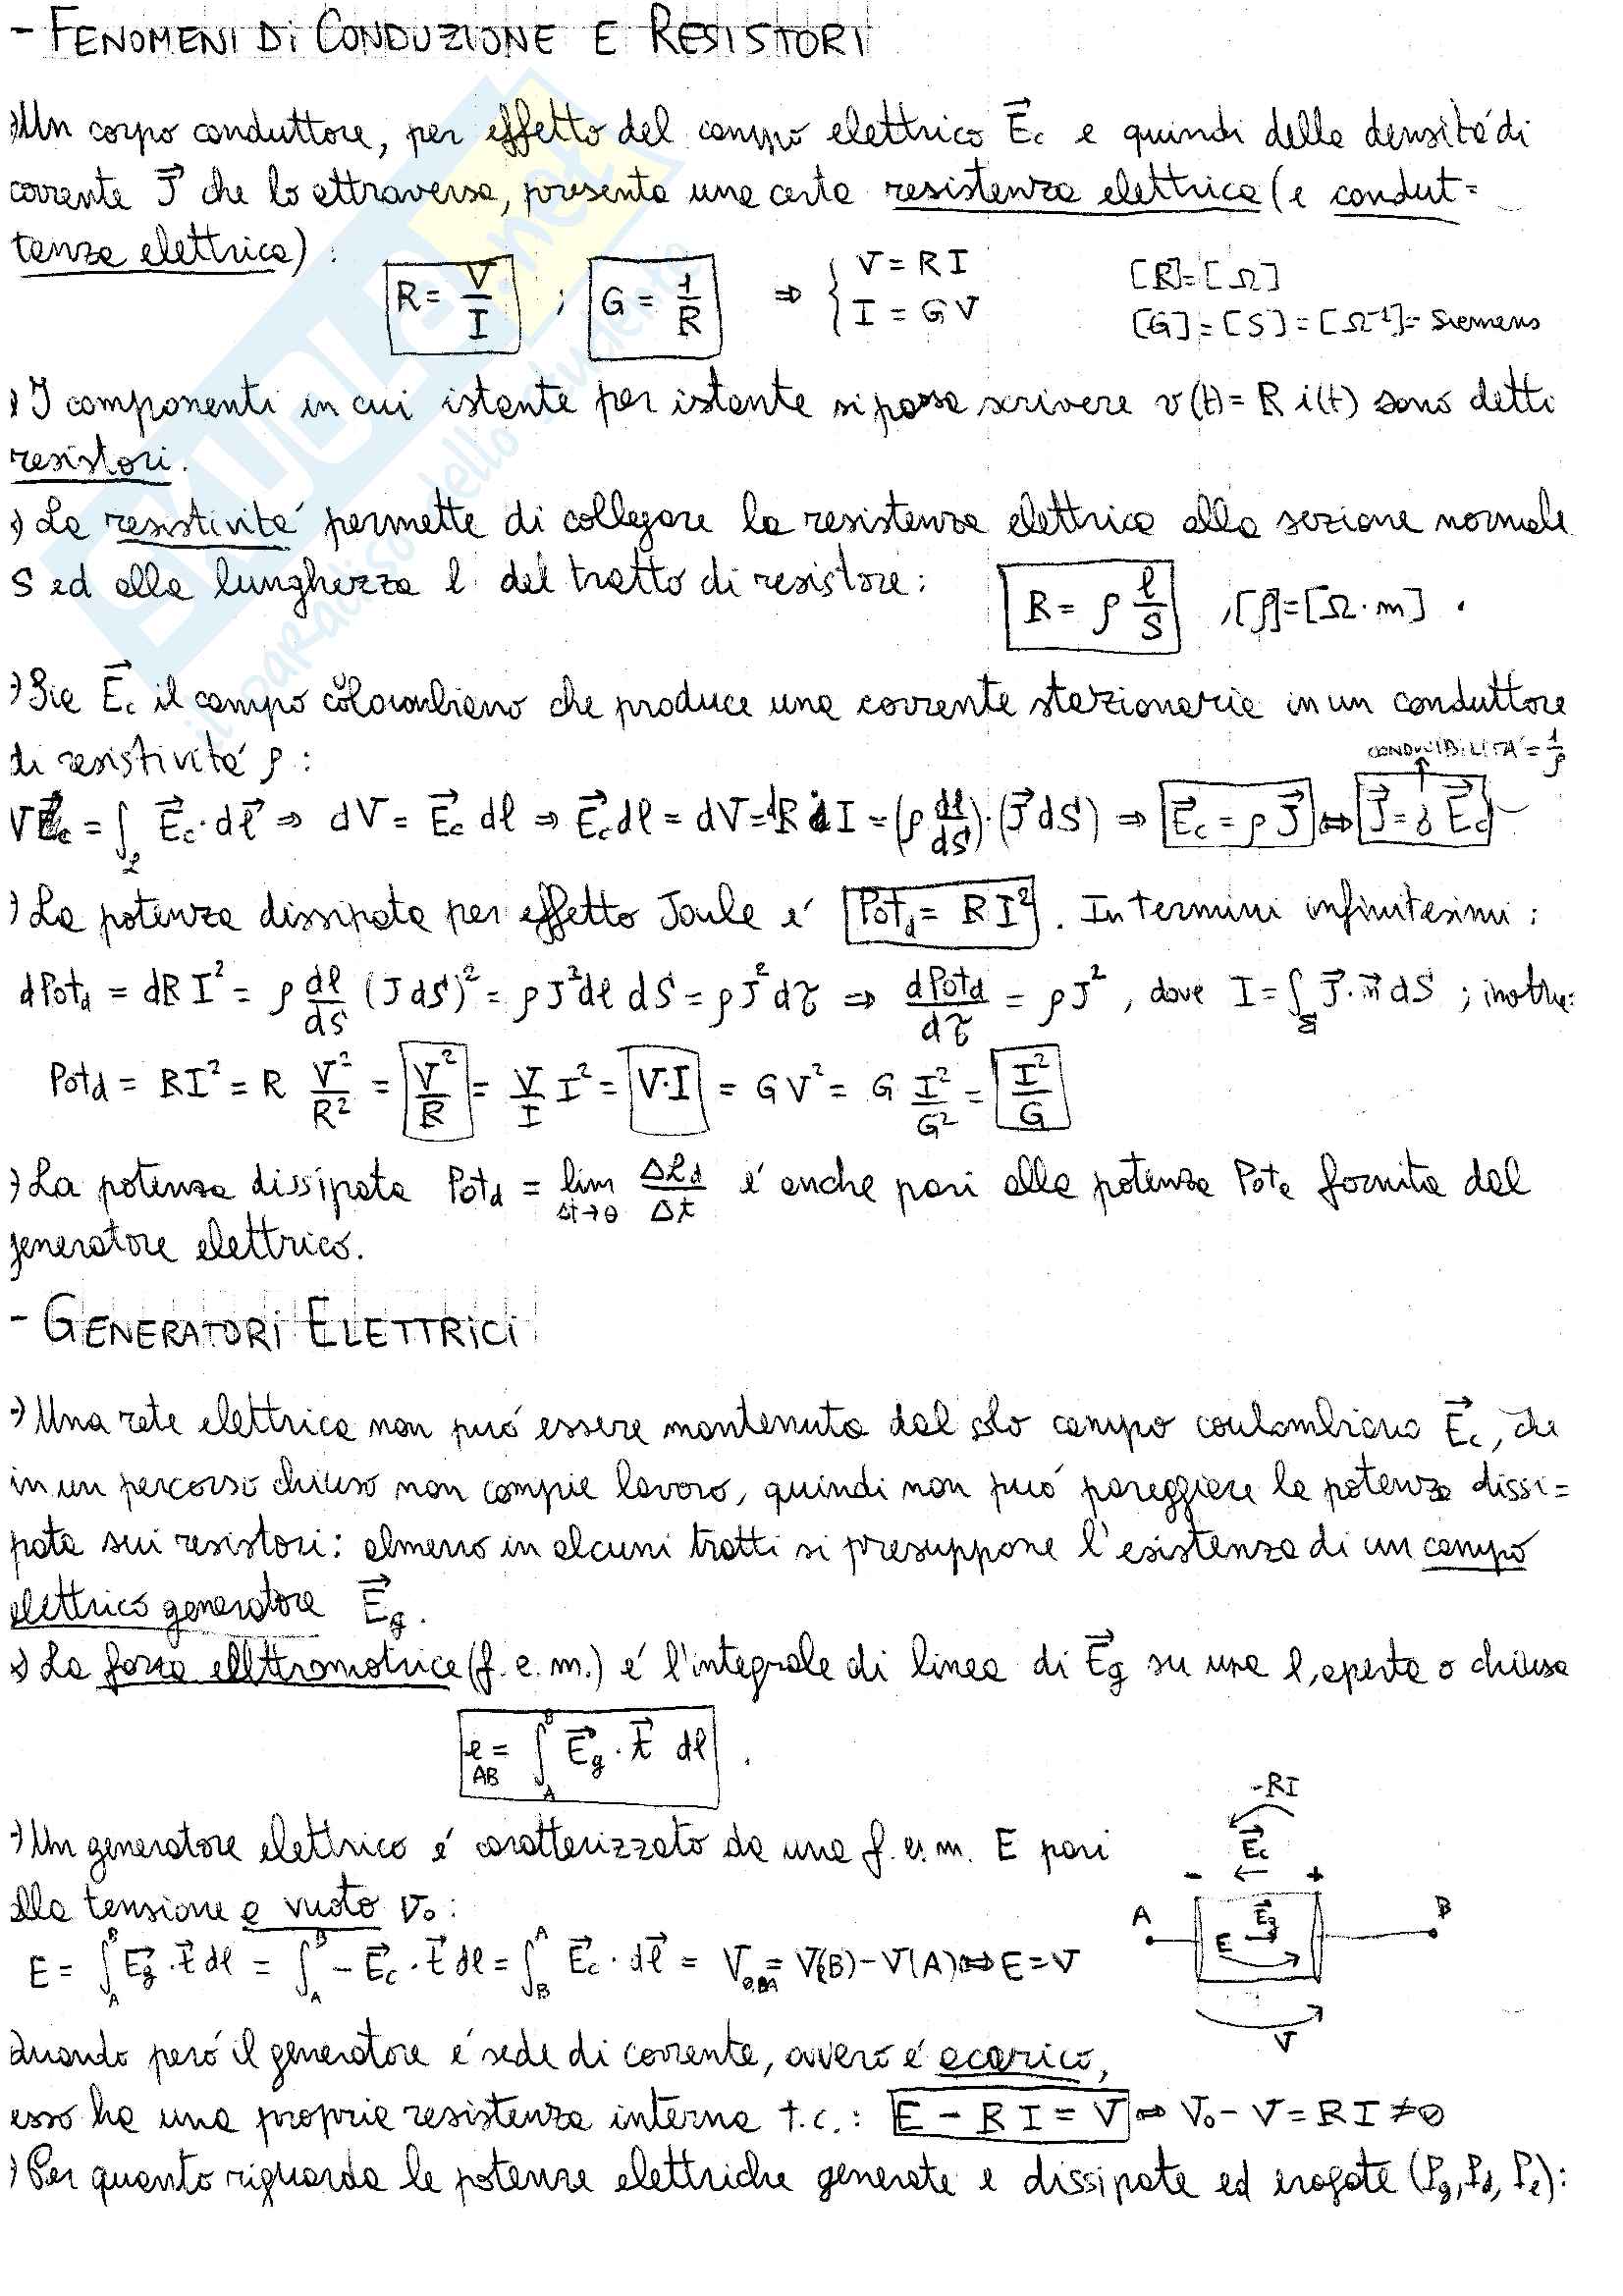 - FENOMENI DI CONDUZIONE E RESISTORI
→ Un corpo conduttore, per effetto del campo elettrico E⃗c e quindi della densità di
corrente J⃗ che lo attraversa, presenta una certa resistenza elettrica (e condut=
tanza elettrica) :
R = V/I ; G = 1/R ⇒ { V = R I
I = G V
[R]=[Ω]
[G]=[S]=[Ω⁻¹]= Siemens
→ I componenti in cui istante per istante si possa scrivere v(t) = R i(t) sono detti
resistori.
→ La resistività permette di collegare la resistenza elettrica alla sezione normale
S ed alla lunghezza l del tratto di resistore: R = ρ l/S , [ρ]=[Ω·m] .
→ Sia E⃗c il campo coloumbiano che produce una corrente stazionaria in un conduttore
di resistività ρ :
CONDUCIBILITA' = 1/ρ
V = ∫_l E⃗c · dl⃗ ⇒ dV = E⃗c dl ⇒ E⃗c dl = dV = dR dI = (ρ dl/dS)·(J⃗ dS) ⇒ E⃗c = ρ J⃗ ⇔ J⃗ = δ E⃗c
→ La potenza dissipata per effetto Joule é Pot_d = R I² . In termini infinitesimi :
dPot_d = dR I² = ρ dl/dS (J dS)² = ρ J² dl dS = ρ J² dτ ⇒ dPot_d/dτ = ρ J² , dove I = ∫_Σ J⃗·n⃗ dS ; inoltre:
Pot_d = R I² = R V²/R² = V²/R = V/I I² = V·I = G V² = G I²/G² = I²/G
→ La potenza dissipata Pot_d = lim Δt→0 ΔL_d/Δt é anche pari alla potenza Pot_e fornita dal
generatore elettrico.
- GENERATORI ELETTRICI
→ Una rete elettrica non può essere mantenuta dal solo campo coulombiano E⃗c, che
in un percorso chiuso non compie lavoro, quindi non può pareggiare la potenza dissi=
pata sui resistori: almeno in alcuni tratti si presuppone l'esistenza di un campo
elettrico generatore E⃗g .
→ La forza elettromotrice (f. e. m.) é l'integrale di linea di E⃗g su una l, aperta o chiusa
e_AB = ∫_A^B E⃗g · t⃗ dl .
-RI
→ Un generatore elettrico é caratterizzato da una f. e. m. E pari
E⃗c
- ← +
alla tensione a vuoto V₀ :
A E⃗g B
E
E = ∫_A^B E⃗g · t⃗ dl = ∫_A^B - E⃗c · t⃗ dl = ∫_B^A E⃗c · dl⃗ = V_0,BA = V(B) - V(A) ⇔ E = V
V
Quando però il generatore é sede di corrente, ovvero é a carico,
esso ha una propria resistenza interna t.c. : E - R I = V ⇔ V₀ - V = R I ≠ 0
→ Per quanto riguarda le potenze elettriche generate e dissipate ed erogate (Pg, Pd, Pe) :